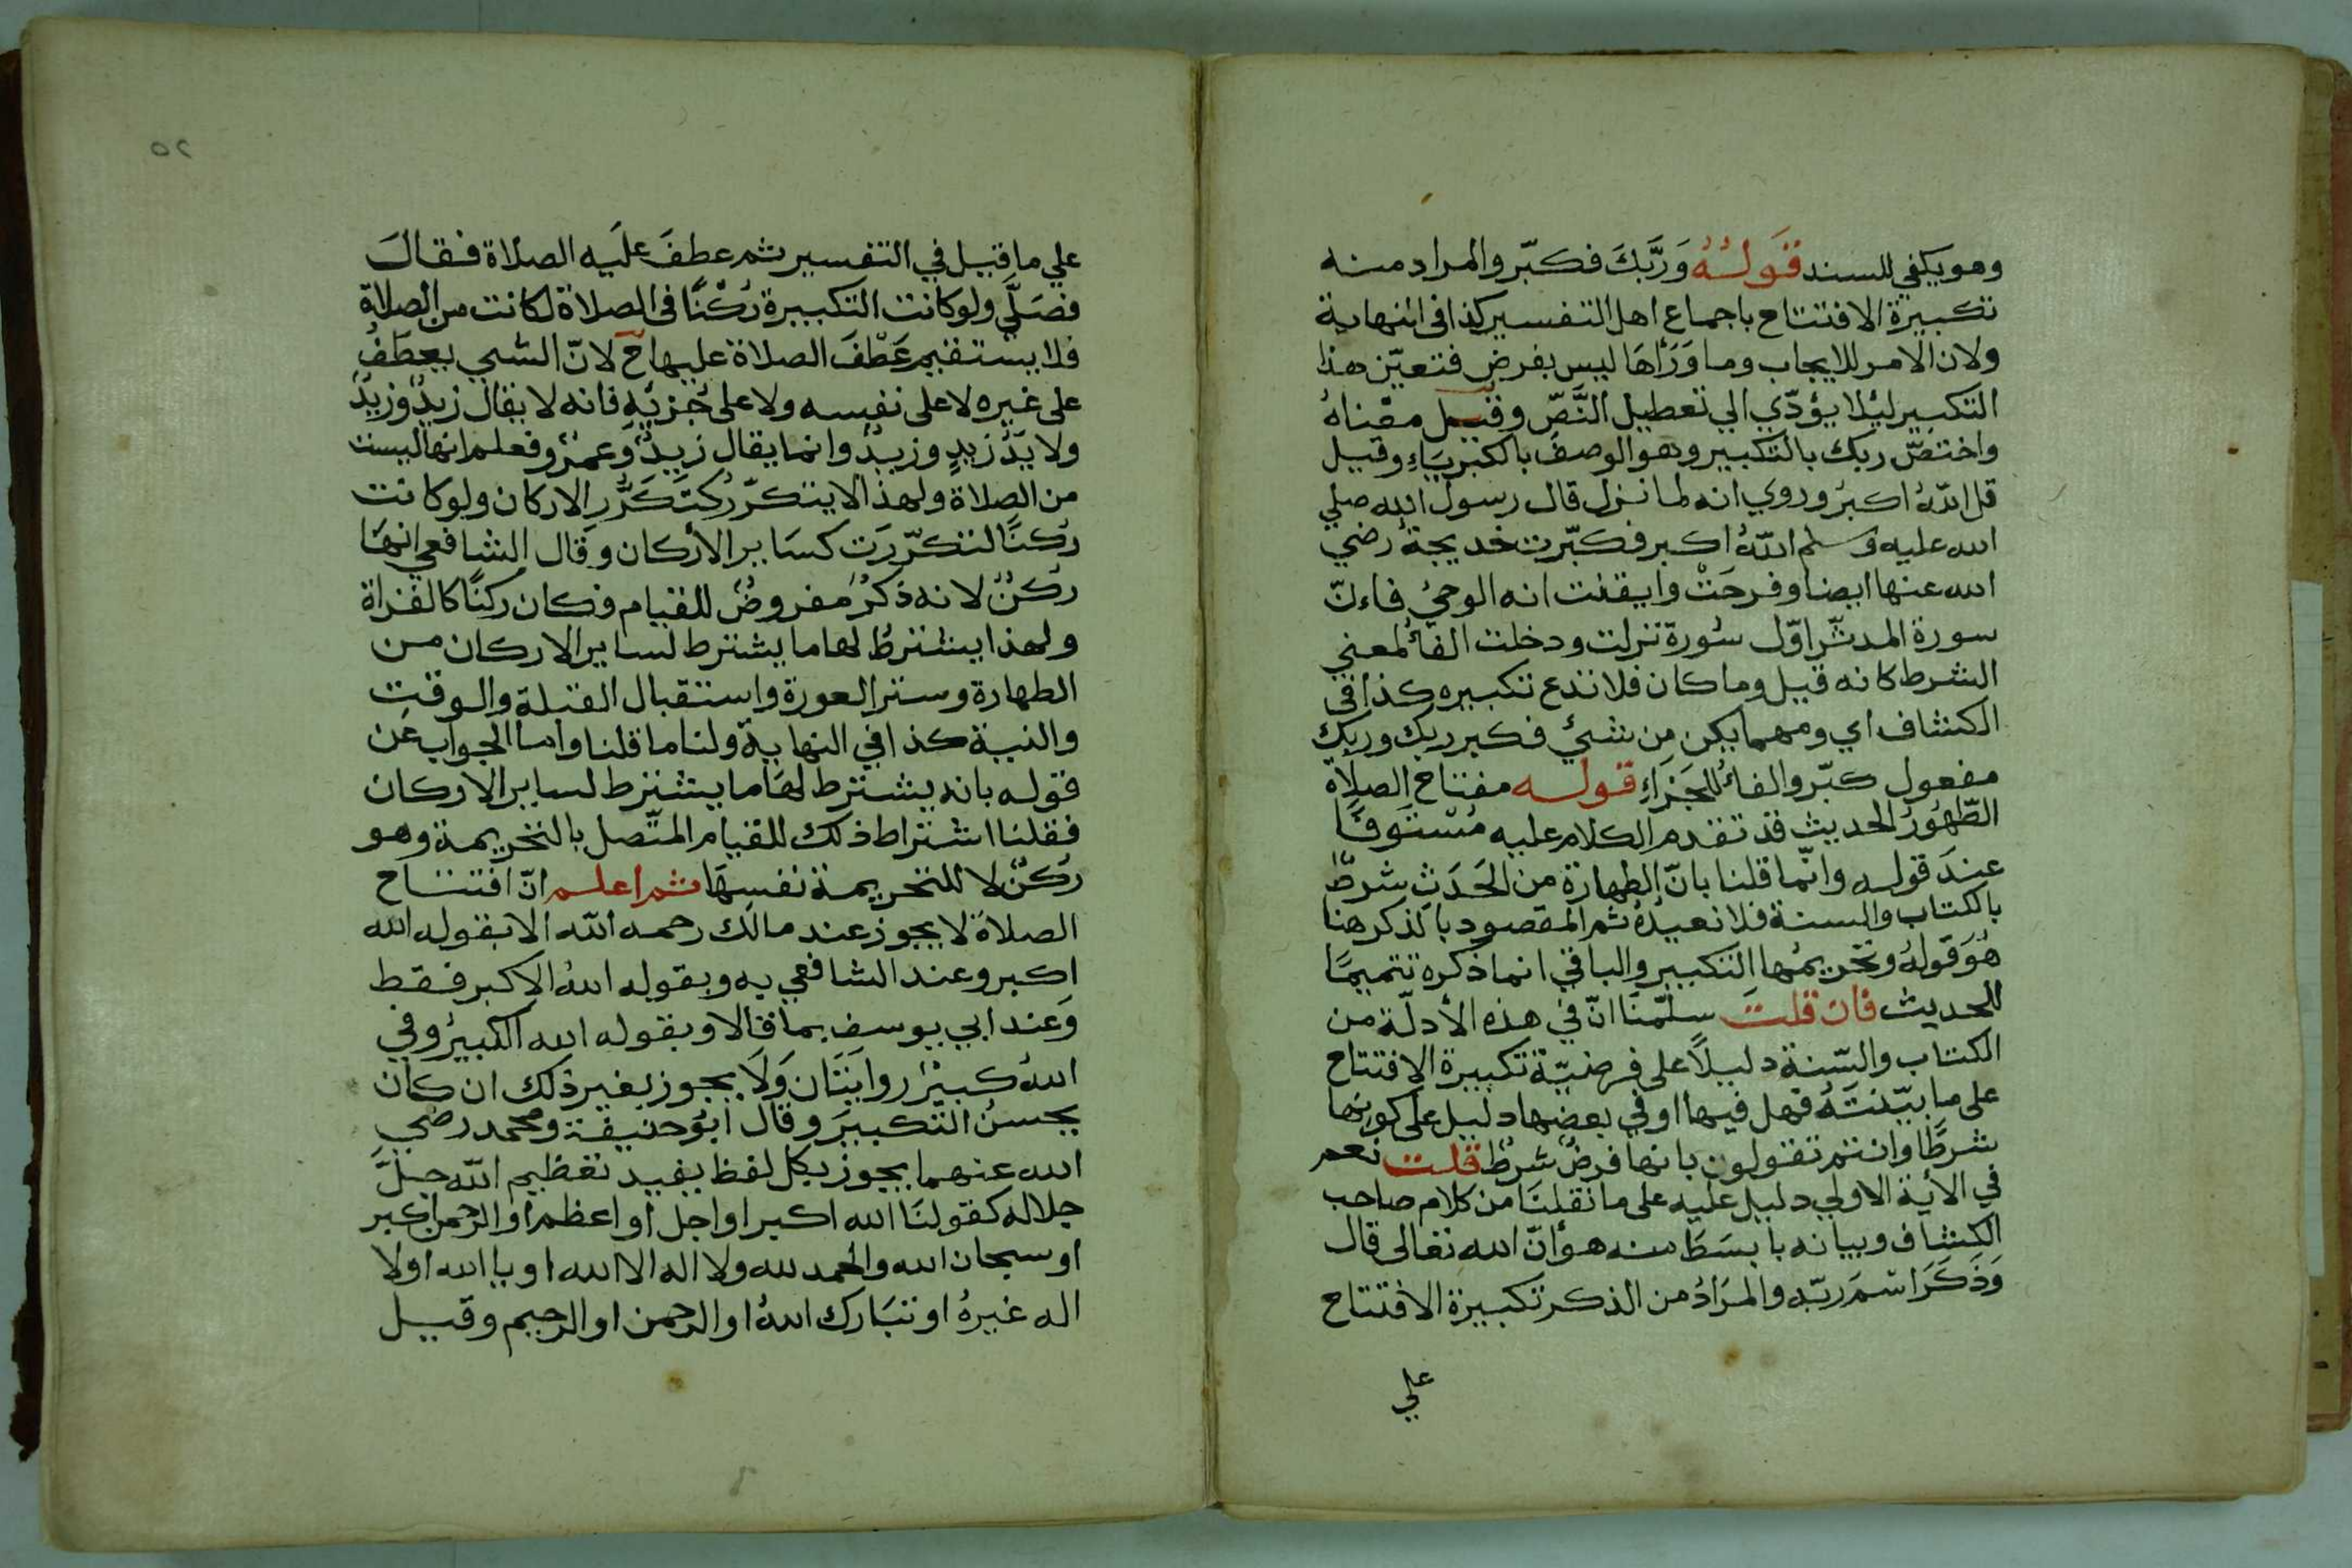 وهو يكفي للسند قَولُهُ وَرَبَّكَ فكبّر والمراد منه
تكبيرة الافتتاح باجماع اهل التفسير كذا في النهاية
ولان الامر للايجاب وما وَرَأهَا ليس بفرض فتعيّن هذا
التكبير لئلا يؤدّي الي تعطيل النَّصّ وقيل معناهُ
واختصّ ربك بالتكبير وهو الوصفُ بالكبريَاءِ وقيل
قل اللهُ اكبرُ وروي انه لما نزل قال رسول الله صلي
الله عليه وسلم اللهُ اكبر فكبّرت خديجةُ رضي
الله عنها ايضا وفرحَتْ وايقنت انه الوحيُ فاءنّ
سورة المدثّر اوّل سُورة نزلت ودخلت الفأُ لمعني
الشرط كانه قيل وما كان فلا تدع تكبيره كذا في
الكشاف اي ومهما يكن من شئ فكبر ربك وربك
مفعول كبّر والفأُ للجَزاءِ قوله مفتاح الصلاة
الطّهُورُ الحديث قد تقدم الكلام عليه مُسْتَوفًا
عندَ قوله وانّما قلنا بانّ الطهارة من الحَدَثِ شرطٌ
بالكتاب والسنة فلا نعيدُهُ ثم المقصود بالذكر هنا
هُوَ قَولهُ وتحريمُها التكبير والباقي انما ذكره تتميمًا
للحديث فان قلتَ سلّمنَا انّ في هذه الأدلّة من
الكتاب والسّنة دليلاً على فرضيّة تكبيرة الافتتاح
على ما بيّنتَهُ فهل فيها او في بعضها دليل على كونها
شرطًا وانتم تقولون بانها فرضٌ شرطٌ قلت نعم
في الأية الاولي دليل عليه على ما نقلنَا من كلام صاحب
الكشاف وبيانه بابسَطَ منه هوُ انّ الله تعالى قال
وَذَكَرَ اسْمَ ربّه والمرَادُ من الذكر تكبيرة الافتتاح
علي
٢٥
علي ما قيل في التفسير ثم عطفَ علَيه الصلاة فقالَ
فصَلَّي ولو كانت التكبيرة رُكْنًا في الصلاة لكانت من الصلاة
فلا يستقيم عَطْفَ الصلاة عليها ح لانّ الشي يعطَفُ
على غيره لا على نفسه ولا على جُزئِه فانه لا يقال زيدٌ وزيدٌ
ولا يَدُ زيدٍ وزيدٌ وانما يقال زيدٌ وَعمرٌو فعلم انها ليست
من الصلاة ولهذا لا يتكرّرُ كتَكَرُّرِ الاركان ولو كانت
رُكنًا لتكرّرَت كسَاير الأركان وقَال الشافعي انهَا
ركنٌ لانه ذكرٌ مفروضٌ للقيام فكان ركنًا كالقراة
ولهذا يشترطُ لها ما يشترط لساير الاركان من
الطهارة وستر العورة واستقبال القبلة والوقت
والنية كذا في النهاية ولنا ما قلنا واما الجواب عَن
قوله بانه يشترط لهَا ما يشترط لساير الاركان
فقلنا اشتراط ذلك للقيام المتّصل بالتحريمة وهو
ركنٌ لا للتحريمة نفسِهَا ثم اعلم انّ افتتاح
الصلاة لا يجوز عند مالك رحمه الله الا بقوله الله
اكبر وعند الشافعي به وبقوله اللهُ الاكبر فقط
وَعند ابي يوسف بما قالا وبقوله الله الكبيرُ وفي
اللهُ كبيْرٌ روايَتَان وَلَا يجوز بغير ذلك ان كان
يحسنُ التكبيرَ وقال ابُو حنيفة ومحمد رضي
الله عنهما يجوز بكل لفظ يفيد تعظيم الله جلّ
جلاله كقولنَا الله اكبر او اجل او اعظم او الرحمن اكبر
او سبحان الله والحمد لله ولا اله الا الله او يا الله او لا
اله غيرهُ او تبَارك اللهُ او الرحمن او الرحيم وقيل